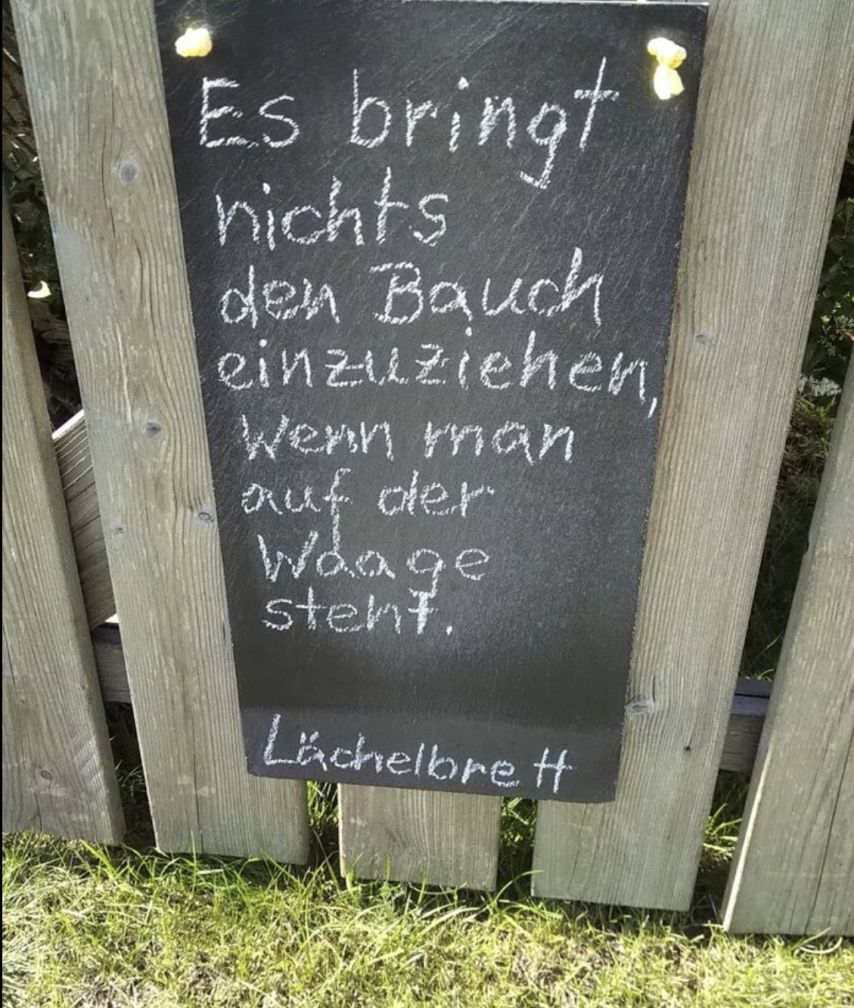 Es bringt
nichts
den Bauch
einzuziehen,
wenn man
auf der
Waage
steht.
Lächelbrett